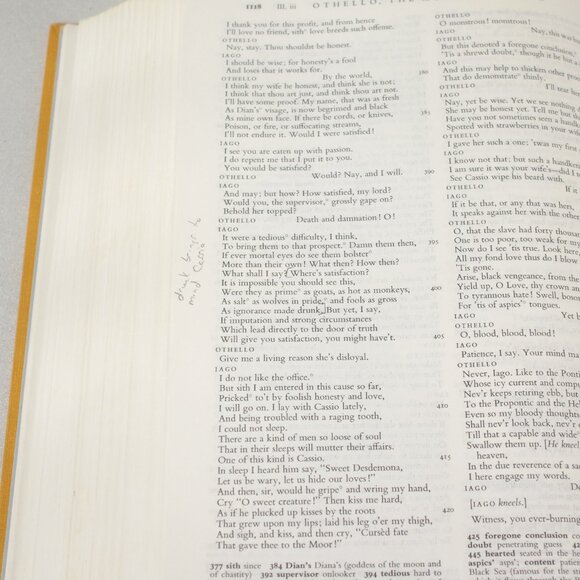 1128 III. iii OTHELLO, THE
I thank you for this profit, and from hence
I'll love no friend, sith° love breeds such offense.
OTHELLO
Nay, stay. Thou shouldst be honest.
IAGO
I should be wise; for honesty's a fool
And loses that it works for.
OTHELLO By the world, 380
I think my wife be honest, and think she is not;
I think that thou art just, and think thou art not.
I'll have some proof. My name, that was as fresh
As Dian's° visage, is now begrimed and black
As mine own face. If there be cords, or knives, 385
Poison, or fire, or suffocating streams,
I'll not endure it. Would I were satisfied!
IAGO
I see you are eaten up with passion.
I do repent me that I put it to you.
You would be satisfied?
OTHELLO Would? Nay, and I will. 390
IAGO
And may; but how? How satisfied, my lord?
Would you, the supervisor,° grossly gape on?
Behold her topped?
OTHELLO Death and damnation! O!
IAGO
It were a tedious° difficulty, I think,
To bring them to that prospect.° Damn them then, 395
If ever mortal eyes do see them bolster°
More than their own! What then? How then?
What shall I say? Where's satisfaction?
It is impossible you should see this,
Were they as prime° as goats, as hot as monkeys, 400
As salt° as wolves in pride,° and fools as gross
As ignorance made drunk. But yet, I say,
If imputation and strong circumstances
Which lead directly to the door of truth
Will give you satisfaction, you might have't. 405
OTHELLO
Give me a living reason she's disloyal.
IAGO
I do not like the office.°
But sith I am entered in this cause so far,
Pricked° to't by foolish honesty and love,
I will go on. I lay with Cassio lately, 410
And being troubled with a raging tooth,
I could not sleep.
There are a kind of men so loose of soul
That in their sleeps will mutter their affairs.
One of this kind is Cassio. 415
In sleep I heard him say, "Sweet Desdemona,
Let us be wary, let us hide our loves!"
And then, sir, would he gripe° and wring my hand,
Cry "O sweet creature!" Then kiss me hard,
As if he plucked up kisses by the roots 420
That grew upon my lips; laid his leg o'er my thigh,
And sigh, and kiss, and then cry, "Cursèd fate
That gave thee to the Moor!"
377 sith since 384 Dian's Diana's (goddess of the moon and
of chastity) 392 supervisor onlooker 394 tedious hard to
drunk brings to
mind Cassio
OTHELLO
O monstrous! monstrous!
IAGO Nay, this was
OTHELLO
But this denoted a foregone conclusion.
'Tis a shrewd doubt,° though it be
IAGO
And this may help to thicken other
That do demonstrate° thinly.
OTHELLO I'll tear
IAGO
Nay, yet be wise. Yet we see nothing
She may be honest yet. Tell me but
Have you not sometimes seen a
Spotted with strawberries in your
OTHELLO
I gave her such a one; 'twas my first
IAGO
I know not that; but such a
I am sure it was your wife's—did I
See Cassio wipe his beard with.
OTHELLO If it
IAGO
If it be that, or any that was hers,
It speaks against her with the other
OTHELLO
O, that the slave had forty thousand
One is too poor, too weak for my
Now do I see 'tis true. Look here,
All my fond love thus do I blow
'Tis gone.
Arise, black vengeance, from the
Yield up, O Love, thy crown and
To tyrannous hate! Swell, bosom,
For 'tis of aspics'° tongues.
IAGO Yet
OTHELLO
O, blood, blood, blood!
IAGO
Patience, I say. Your mind
OTHELLO
Never, Iago. Like to the Pontic
Whose icy current and
Nev'r keeps retiring ebb, but
To the Propontic and the
Even so my bloody thoughts,
Shall nev'r look back, nev'r
Till that a capable and wide
Swallow them up. [He kneels.]
heaven,
In the due reverence of a
I here engage my words.
IAGO
[IAGO kneels.]
Witness, you ever-burning
425 foregone conclusion
doubt penetrating guess
445 hearted seated in the
aspics' asps'; content
Black Sea (famous for the